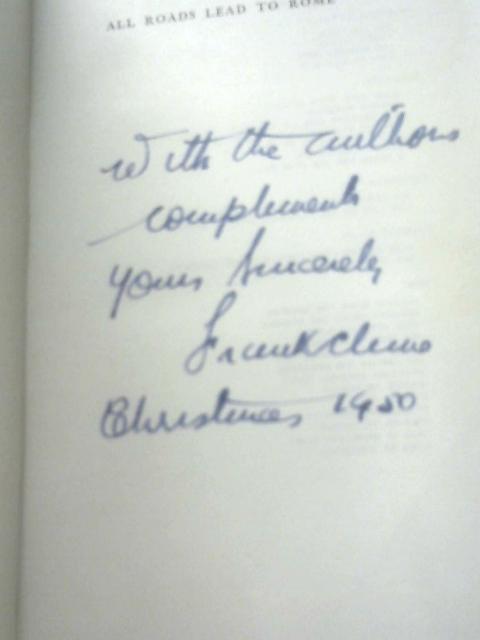 ALL ROADS LEAD TO ROME
With the authors
complements
yours Sincerely
Frank Clune
Christmas 1950